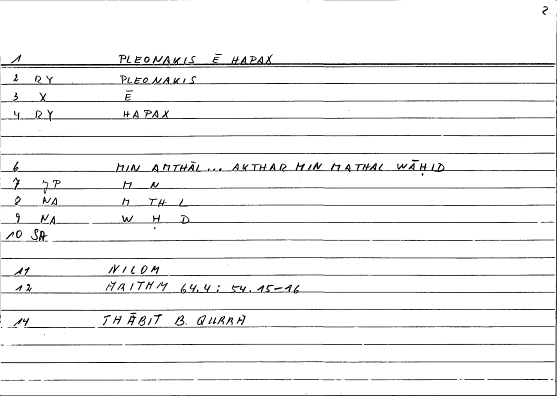 2
1 PLEONAKIS Ē HAPAX
2 RY PLEONAKIS
3 X Ē
4 RY HAPAX
6 MIN AMTHĀL... AKTHAR MIN MATHAL WĀḤID
7 JP M N
8 NA M TH L
9 NA W Ḥ D
10 SA
11 NICOM
12 ARITHM 64.4 : 54.15-16
14 THĀBIT B. QURRA